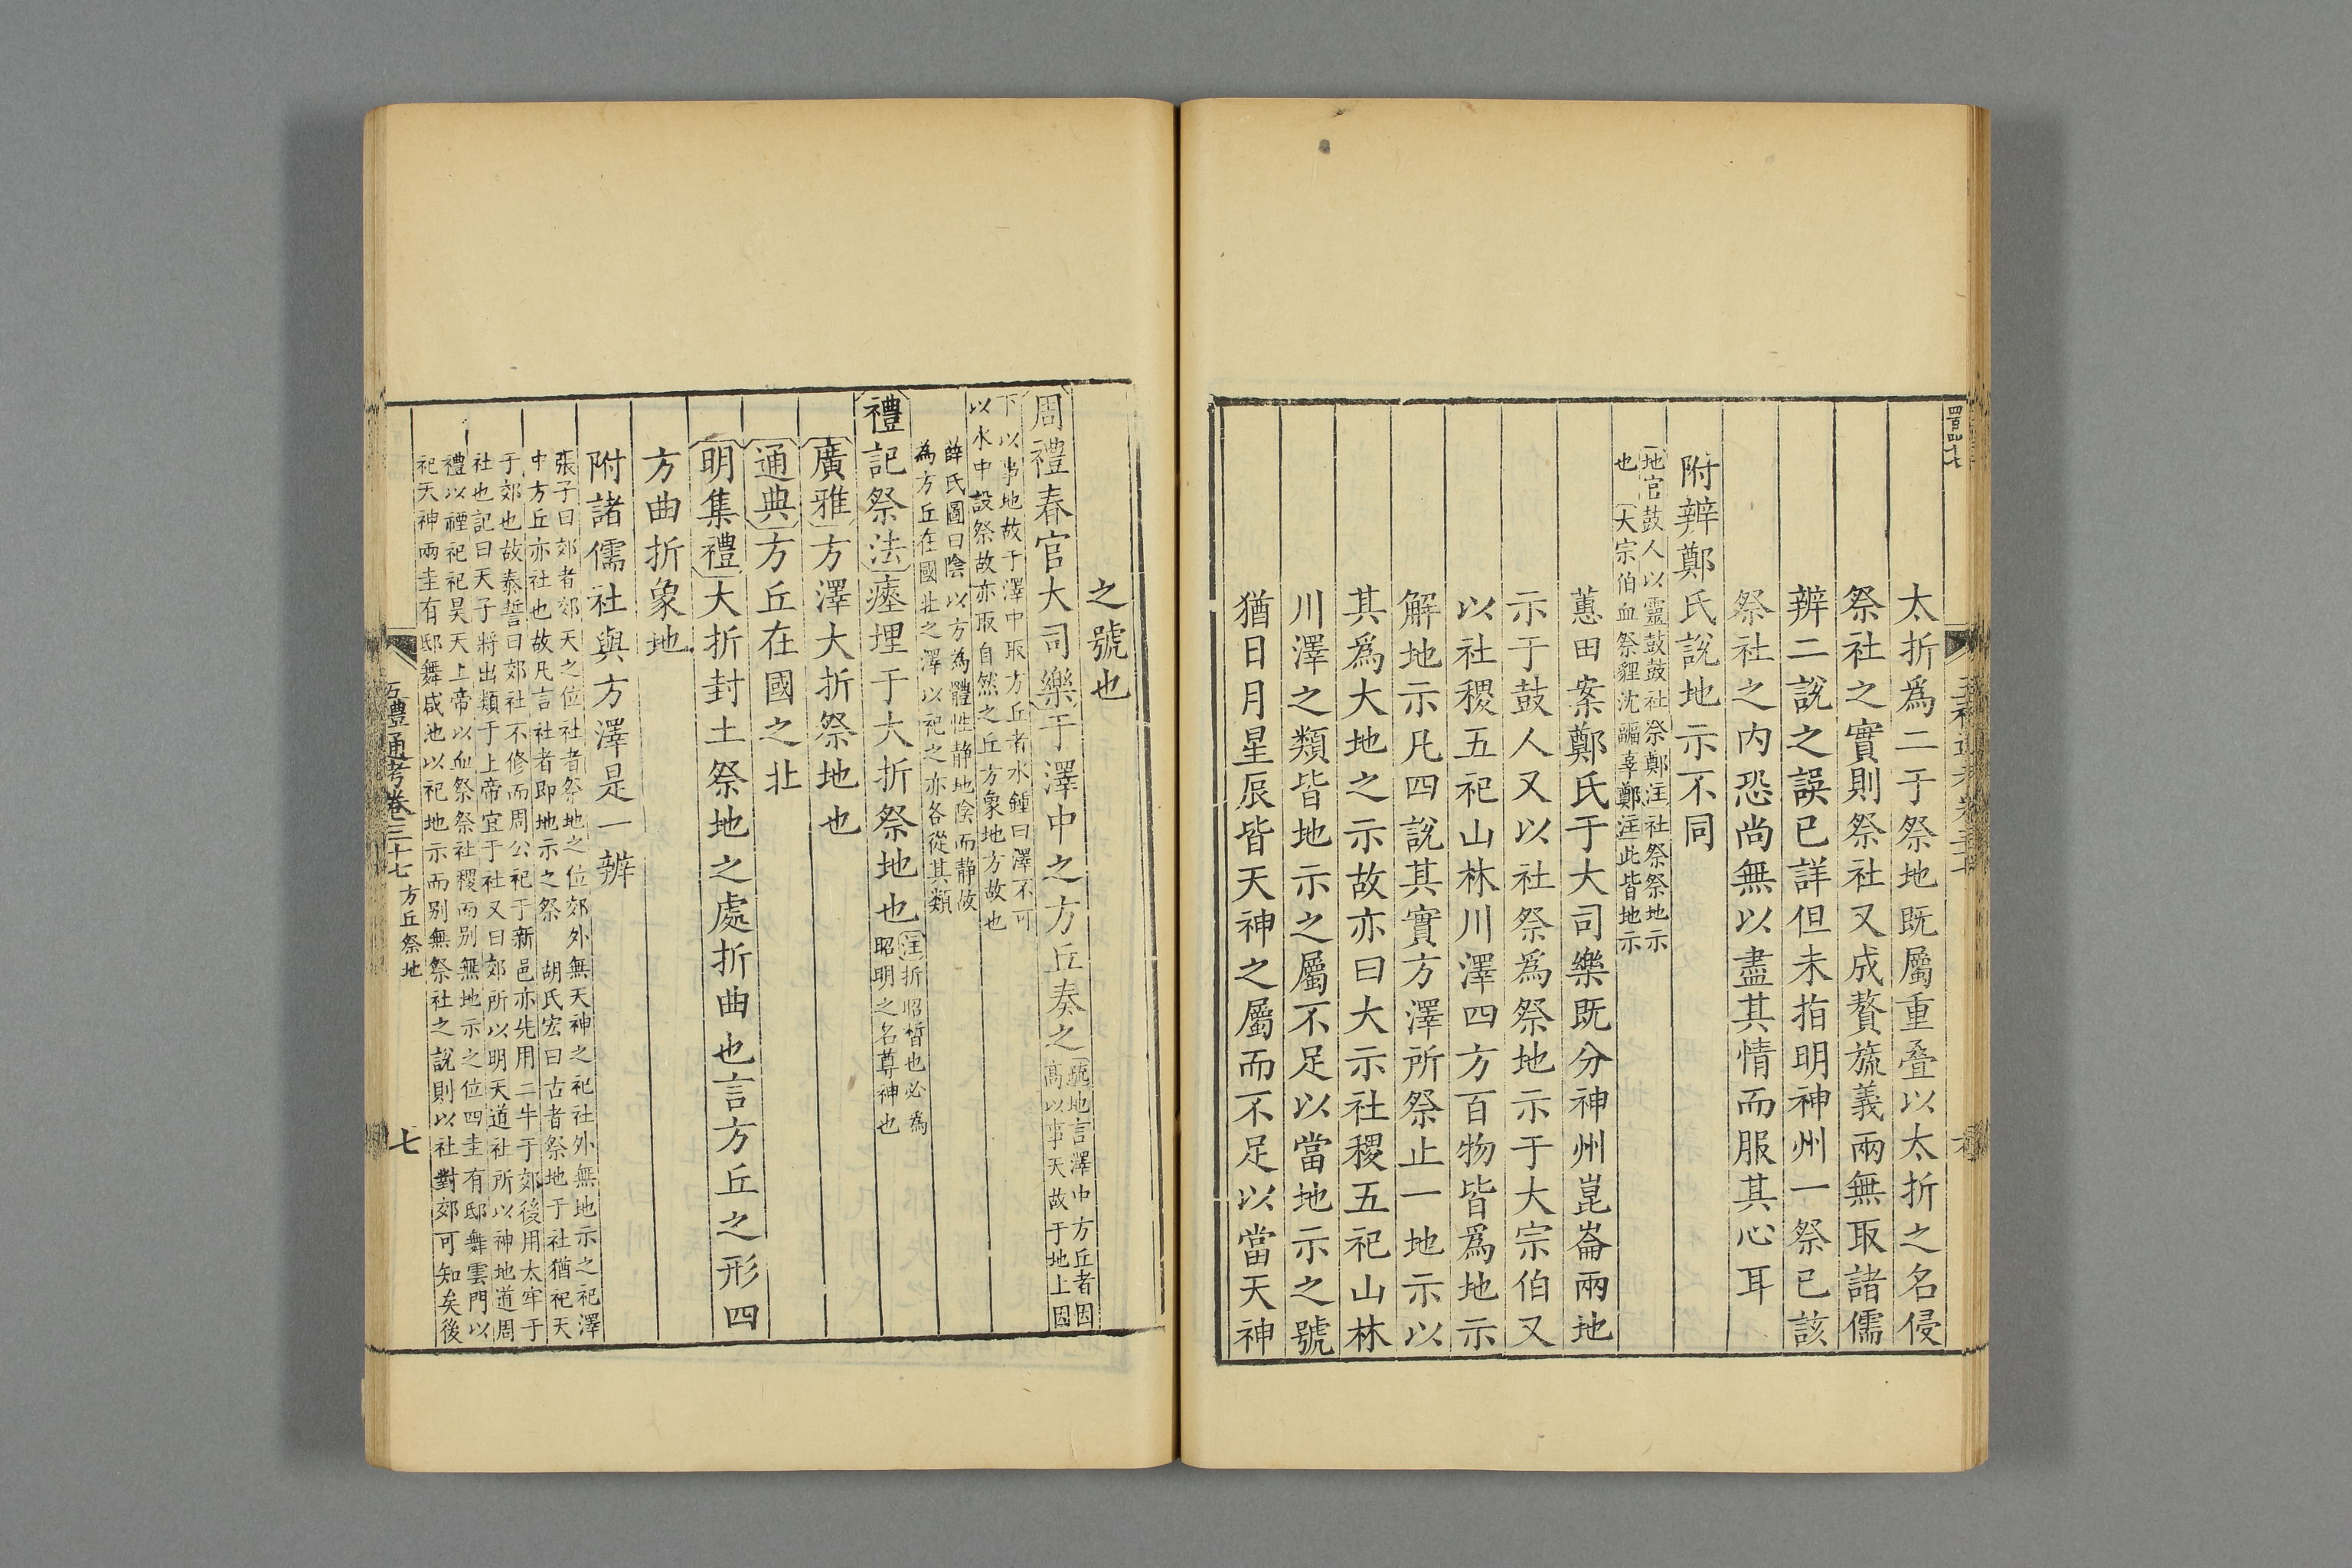 太折爲二于祭地既屬重疊以太折之名侵
祭社之實則祭社又成贅旒義兩無取諸儒
辨二說之誤已詳但未指明神州一祭已該
祭社之内恐尚無以盡其情而服其心耳
附辨鄭氏說地示不同
地官鼓人以靈鼓鼓社祭鄭注社祭祭地示
也 大宗伯血祭貍沈疈辜鄭注此皆地示
蕙田案鄭氏于大司樂既分神州崑崙兩地
示于鼓人又以社祭爲祭地示于大宗伯又
以社稷五祀山林川澤四方百物皆爲地示
解地示凡四說其實方澤所祭止一地示以
其爲大地之示故亦曰大示社稷五祀山林
川澤之類皆地示之屬不足以當地示之號
猶日月星辰皆天神之屬而不足以當天神
之號也
周禮春官大司樂于澤中之方丘奏之
疏地言澤中方丘者因
高以事天故于地上因
下以事地故于澤中取方丘者水鍾曰澤不可
以水中設祭故亦取自然之丘方象地方故也
薛氏圖曰陰以方為體性静地陰而静故
為方丘在國北之澤以祀之亦各從其類
禮記祭法瘞埋于大折祭地也
注折昭晳也必為
昭明之名尊神也
廣雅方澤大折祭地也
通典方丘在國之北
明集禮大折封土祭地之處折曲也言方丘之形四
方曲折象地
附諸儒社與方澤是一辨
張子曰郊者郊天之位社者祭地之位郊外無天神之祀社外無地示之祀澤
中方丘亦社也故凡言社者即地示之祭 胡氏宏曰古者祭地于社猶祀天
于郊也故泰誓曰郊社不修而周公祀于新邑亦先用二牛于郊後用太牢于
社也記曰天子將出類于上帝宜于社又曰郊所以明天道社所以神地道周
禮以禋祀祀昊天上帝以血祭祭社稷而别無地示之位四圭有邸舞雲門以
祀天神兩圭有邸舞咸池以祀地示而别無祭社之說則以社對郊可知矣後
五禮通考卷三十七 方丘祭地
七